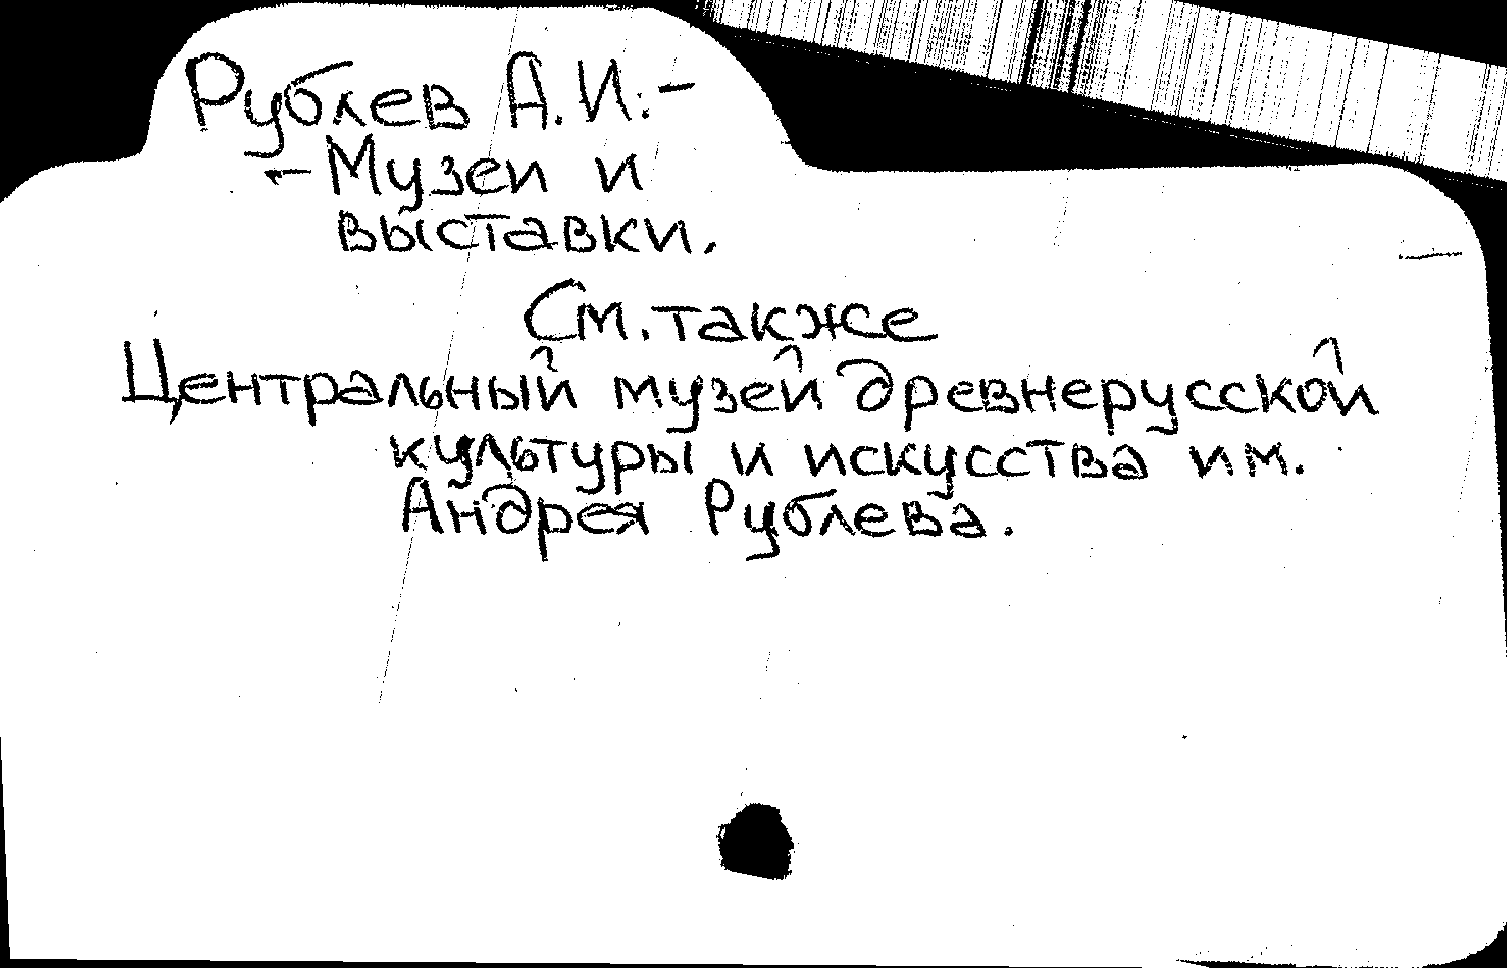 Рублев А.И.-
- Музеи и
выставки.
См. также
Центральный музей древнерусской
культуры и искусства им.
Андрея Рублева.